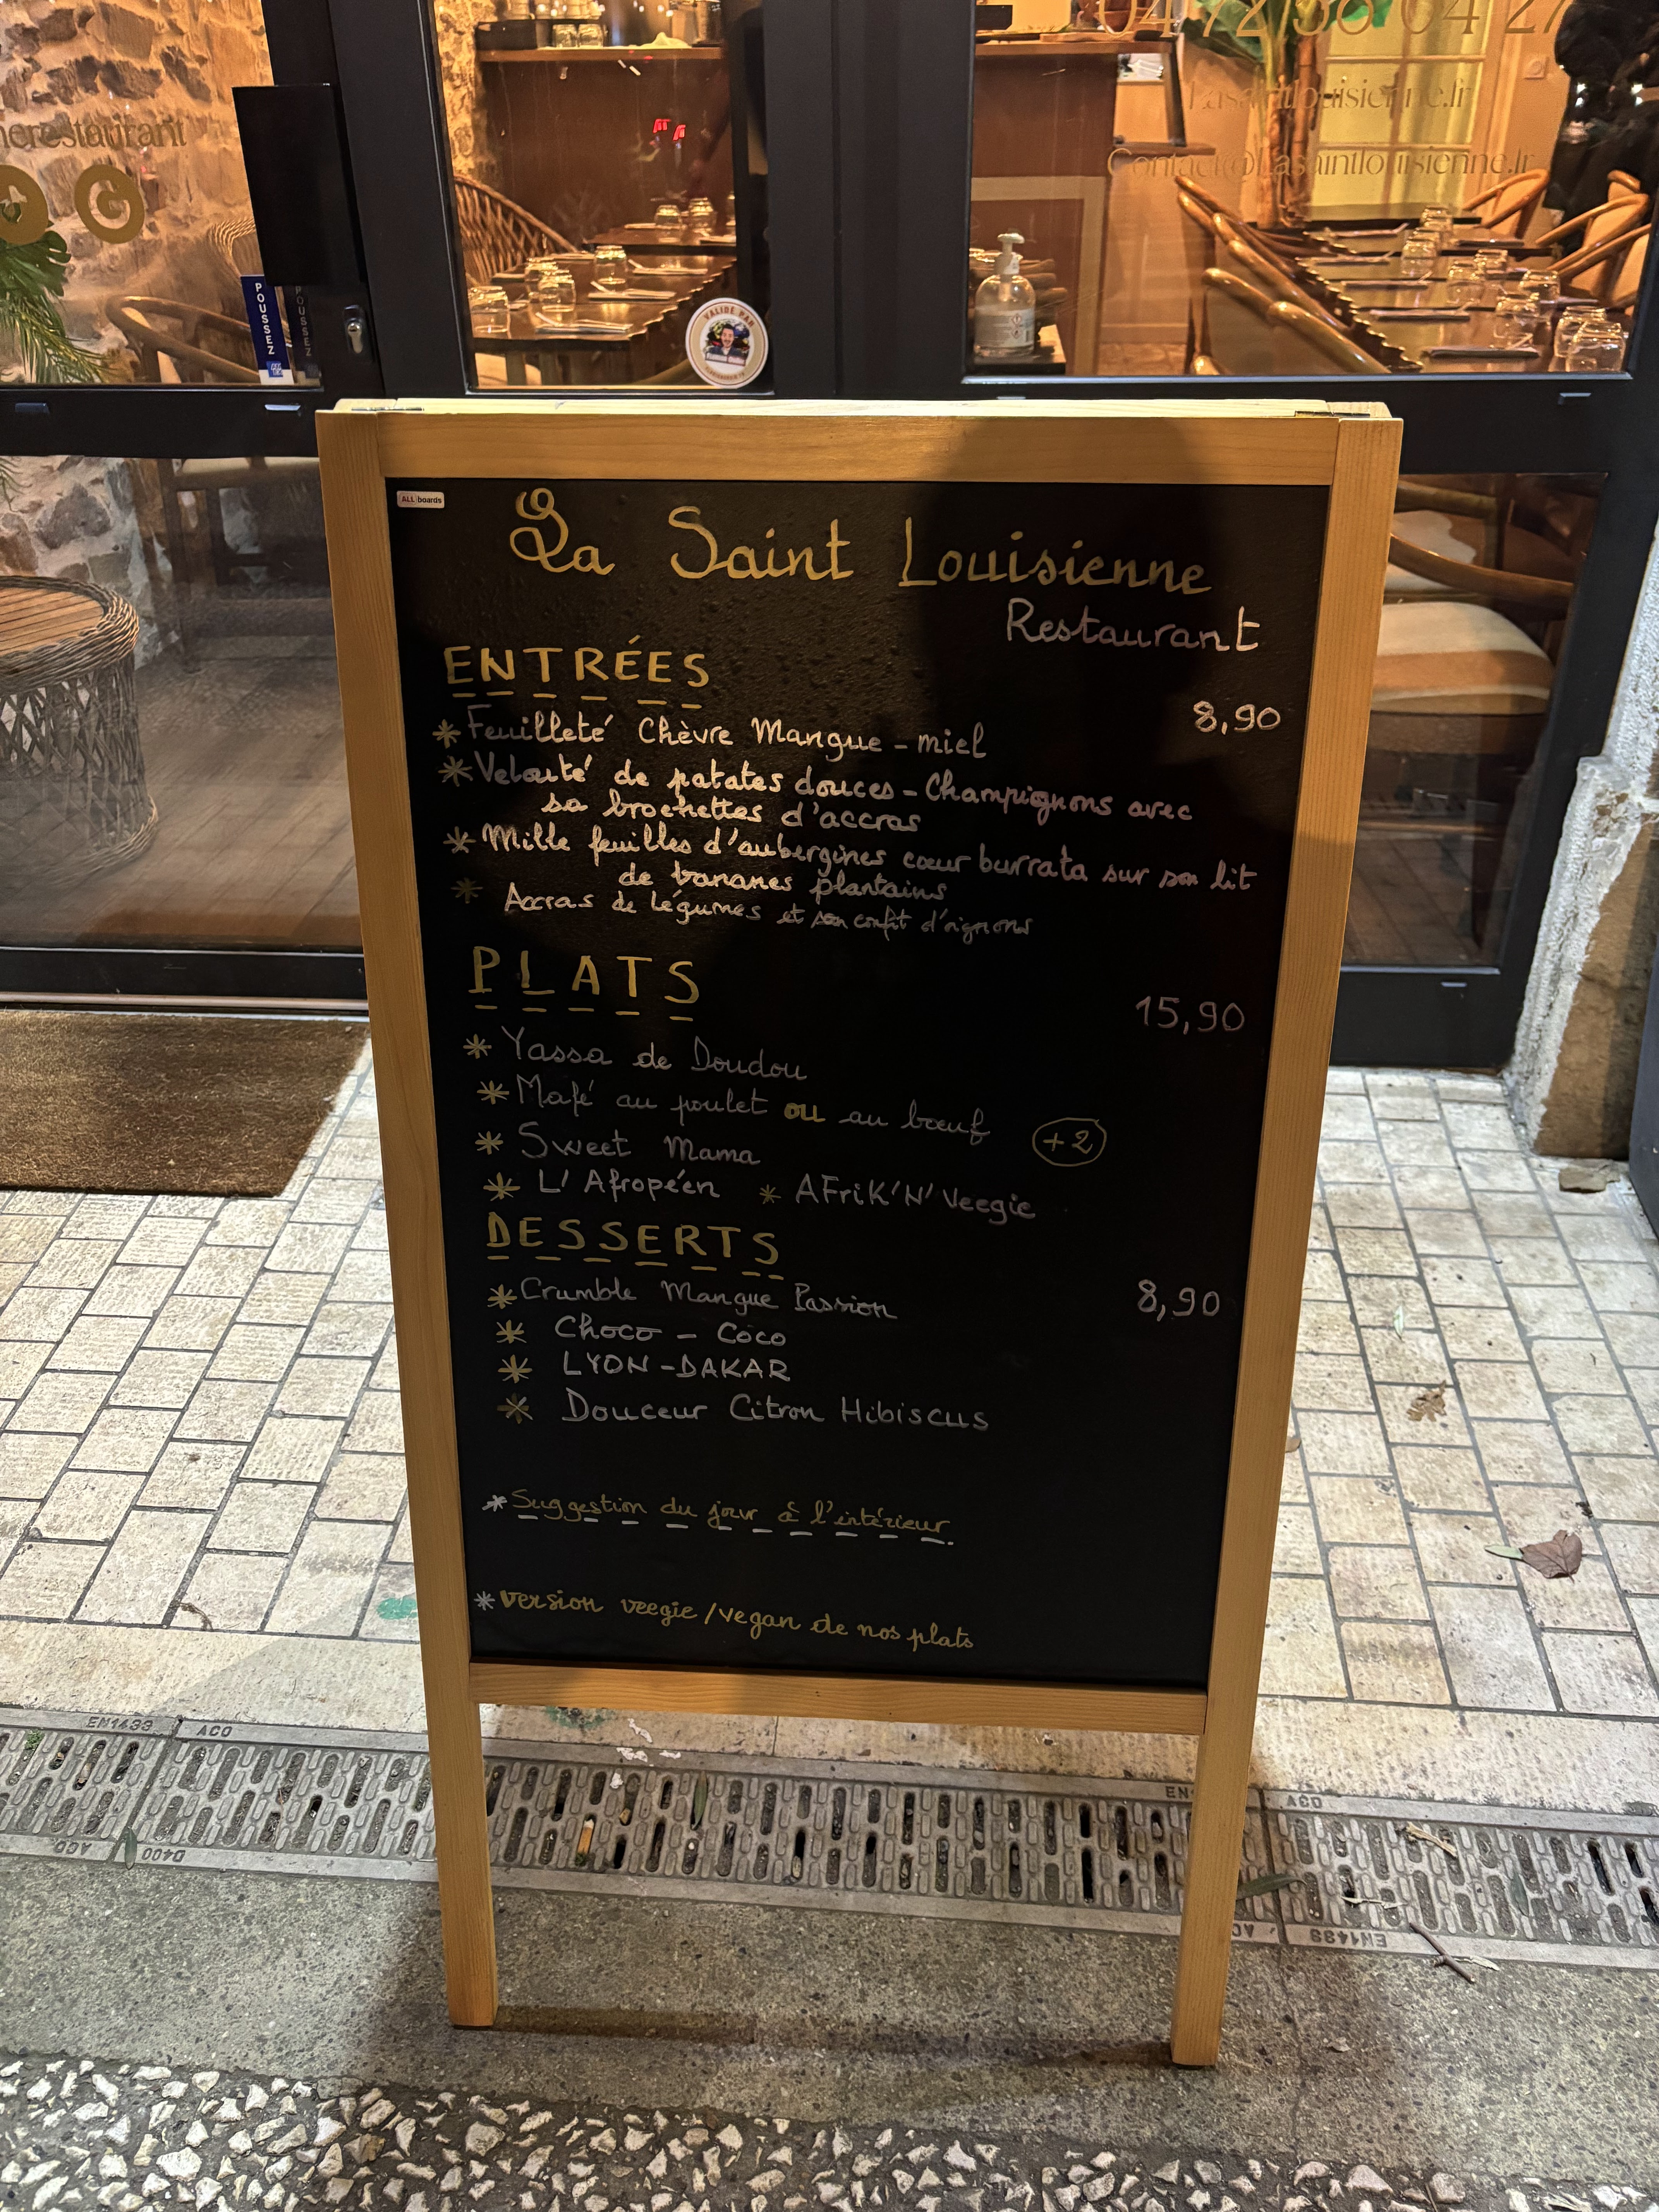 04 72 38 04 27
Lasaintlouisienne.fr
Contact@Lasaintlouisienne.fr
nerestaurant
POUSSEZ
VALIDÉ PAR
ALL boards
La Saint Louisienne
Restaurant
ENTRÉES
8,90
* Feuilleté Chèvre Mangue - miel
* Velouté de patates douces - Champignons avec
sa brochettes d'accras
* Mille feuilles d'aubergines cœur burrata sur son lit
de bananes plantains
* Accras de légumes et son confit d'oignons
PLATS
15,90
* Yassa de Doudou
* Mafé au poulet ou au bœuf +2
* Sweet Mama
* L'Afropéen * AFriK'N'Veegie
DESSERTS
* Crumble Mangue Passion 8,90
* Choco - Coco
* LYON - DAKAR
* Douceur Citron Hibiscus
* Suggestion du jour à l'intérieur.
* version veegie/vegan de nos plats
EN1433 ACO
ACO D400
EN ACO
EN1433